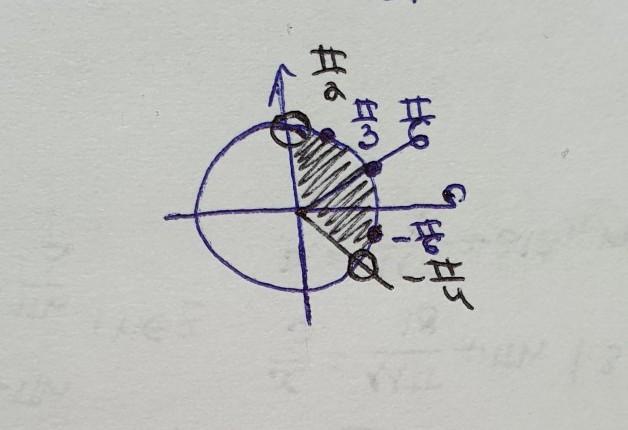 π/2
π/3
π/6
-π/6
-π/4